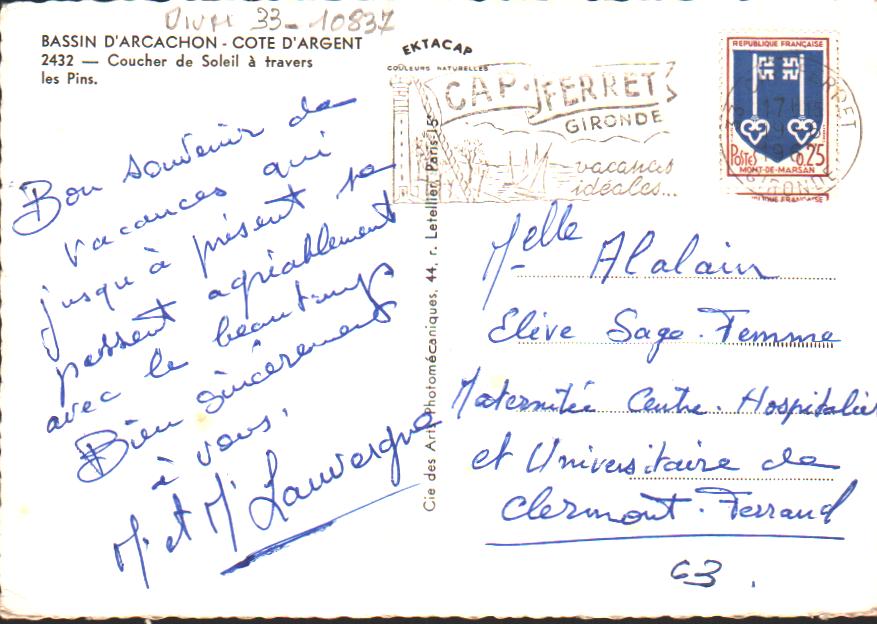 DIVM 33-10837
BASSIN D'ARCACHON - COTE D'ARGENT
2432 — Coucher de Soleil à travers
les Pins.
EKTACAP
COULEURS NATURELLES
CAP-FERRET
GIRONDE
vacances
idéales...
REPUBLIQUE FRANÇAISE
POSTES 0,25
MONT-DE-MARSAN
FERRET
GIRONDE
Bon souvenir de
vacances qui
jusqu'à présent se
passent agréablement
avec le beau temps
Bien sincèrement
à vous.
M. et Me Lauvergne
Cie des Arts Photomécaniques, 44, r. Letellier, Paris-15e
Melle Alalain
Elève Sage-Femme
Maternité Centre Hospitalier
et Universitaire de
Clermont-Ferrand
63.